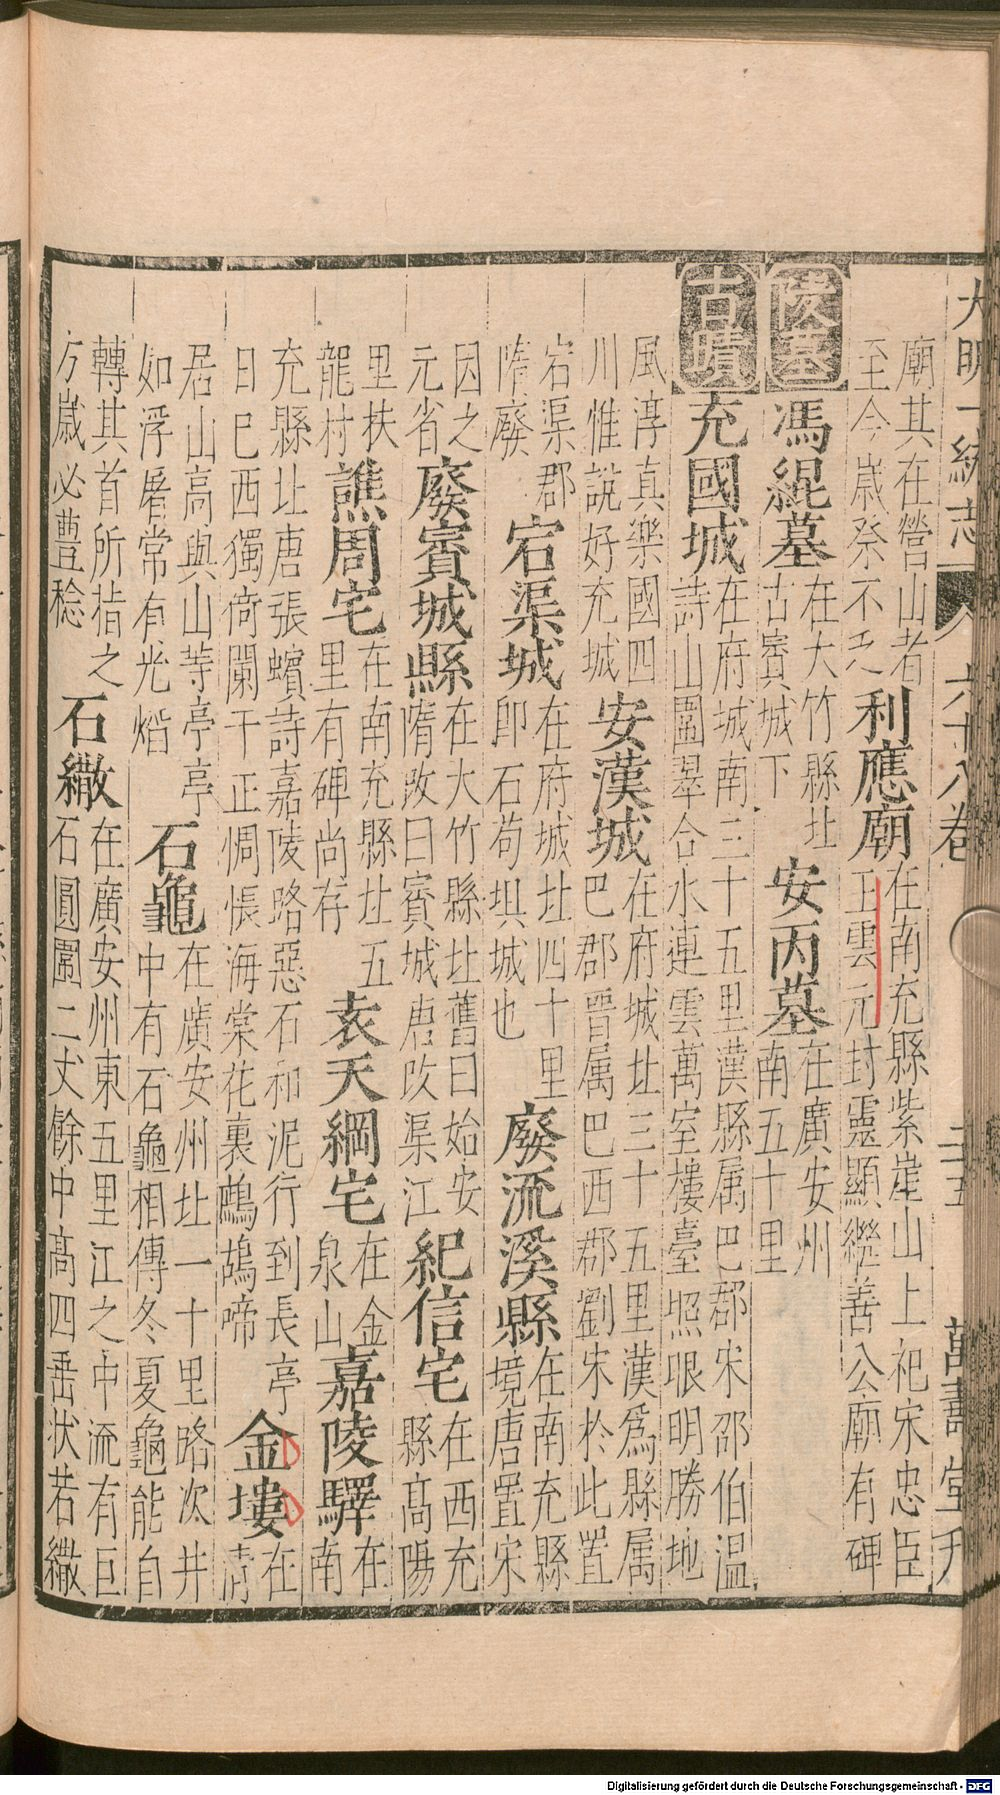 大明一統志 六十八卷 二十五 萬壽堂刊
廟其在營山者
至今歲祭不乏
利應廟
在南充縣紫崖山上祀宋忠臣
王雲元封靈顯繼善公廟有碑
陵墓
馮緄墓
在大竹縣北
古賨城下
安丙墓
在廣安州
南五十里
古蹟
充國城
在府城南三十五里漢縣属巴郡宋邵伯温
詩山圍翠合水連雲萬室樓臺照眼明勝地
風淳真樂國四
川惟說好充城
安漢城
在府城北三十五里漢為縣属
巴郡晋属巴西郡劉宋於此置
宕渠郡
隋廢
宕渠城
在府城北四十里
卽石苟垻城也
廢流溪縣
在南充縣
境唐置宋
因之
元省
廢賨城縣
在大竹縣北舊曰始安
隋改曰賨城唐改渠江
紀信宅
在西充
縣高陽
里扶
龍村
譙周宅
在南充縣北五
里有碑尚存
袁天綱宅
在金
泉山
嘉陵驛
在
南
充縣北唐張蠙詩嘉陵路惡石和泥行到長亭
日已西獨倚闌干正惆悵海棠花裏鷓鴣啼
金塿
在
清
居山高與山等亭亭
如浮屠常有光熖
石龜
在廣安州北一十里路次井
中有石龜相傳冬夏龜能自
轉其首所指之
方歲必豊稔
石繖
在廣安州東五里江之中流有巨
石圓圍二丈餘中高四垂状若繖
Digitalisierung gefördert durch die Deutsche Forschungsgemeinschaft - DFG